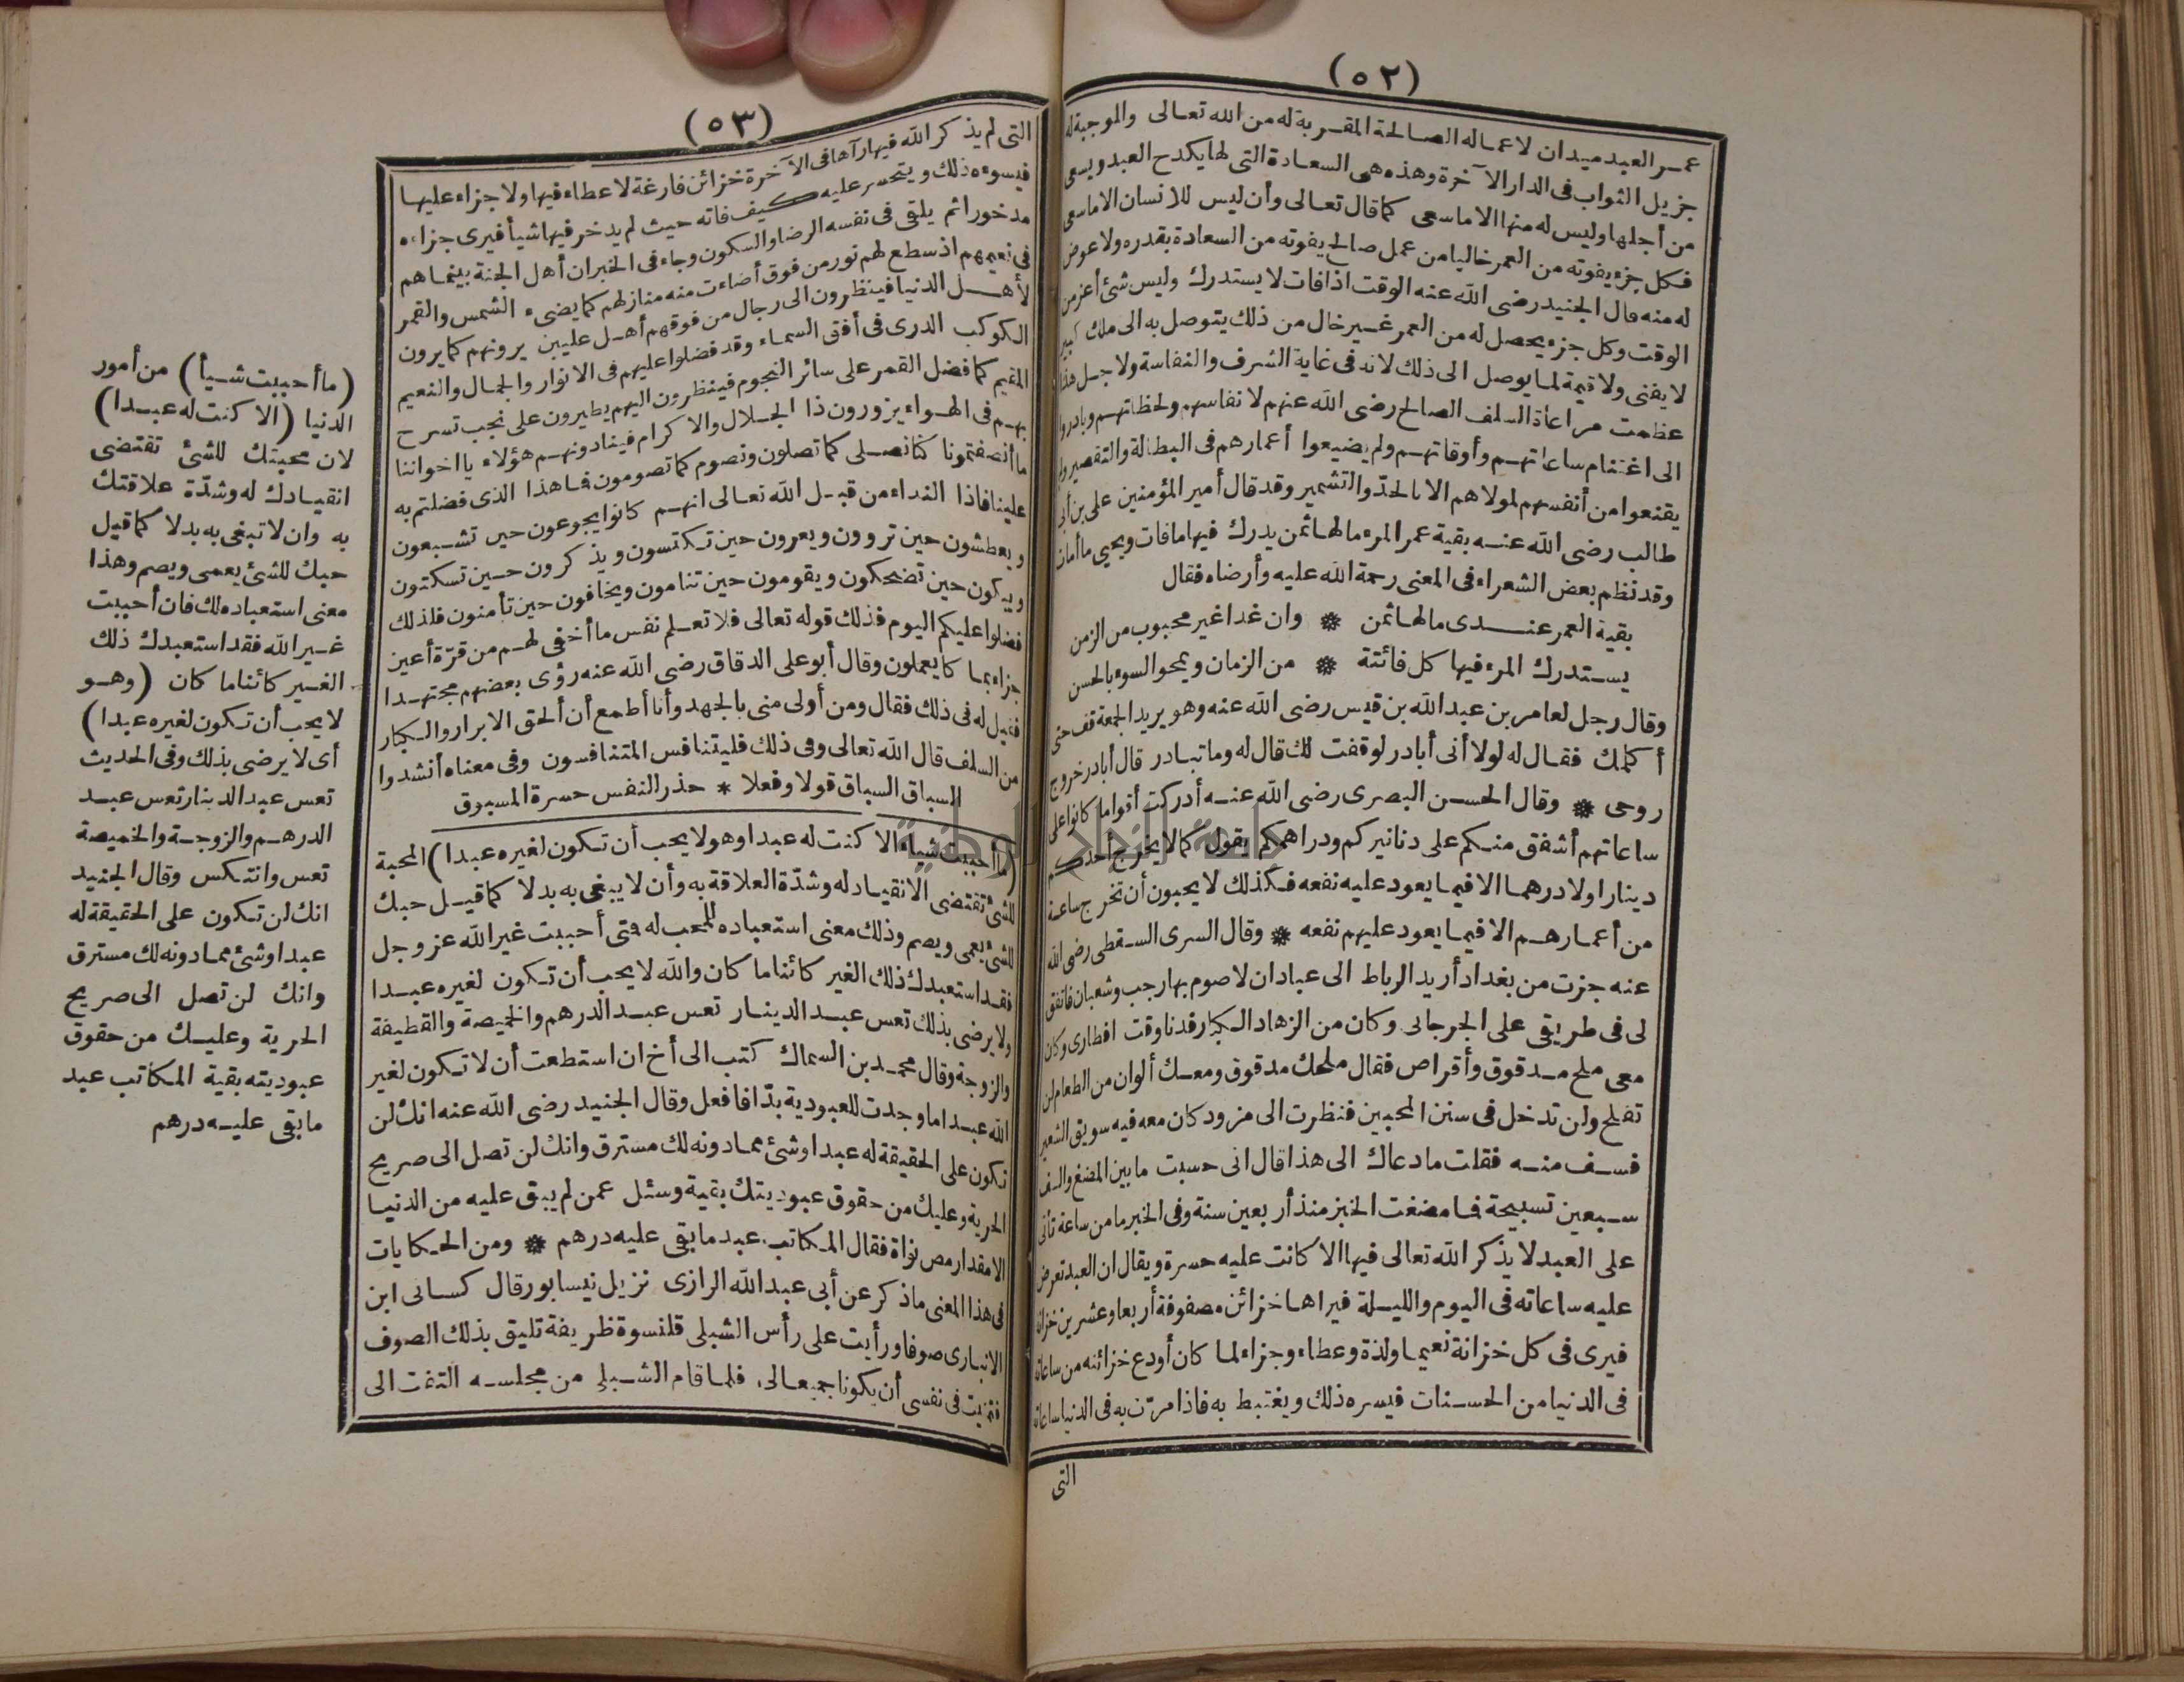 (٥٢)
عمر العبد ميدان لاعماله الصالحة المقربة له من الله تعالى والموجبة له
جزيل الثواب فى الدار الآخرة وهذه هى السعادة التى لها يكدح العبد ويسعى
من أجلها وليس له منها الا ما سعى كما قال تعالى وأن ليس للانسان الا ما سعى
فكل جزء يفوته من العمر خاليا من عمل صالح يفوته من السعادة بقدره ولا عوض
له منه قال الجنيد رضى الله عنه الوقت اذا فات لا يستدرك وليس شئ أعز من
الوقت وكل جزء يحصل له من العمر غير خال من ذلك يتوصل به الى ملك كبير
لا يفنى ولا قيمة لما يوصل الى ذلك لانه فى غاية الشرف والنفاسة ولاجل هذا
عظمت مراعاة السلف الصالح رضى الله عنهم لانفاسهم ولحظاتهم وبادروا
الى اغتنام ساعاتهم وأوقاتهم ولم يضيعوا أعمارهم فى البطالة والتقصير ولم
يقنعوا من أنفسهم لمولاهم الا بالجدّ والتشمير وقد قال أمير المؤمنين على بن أبى
طالب رضى الله عنه بقية عمر المرء ما لها ثمن يدرك فيها ما فات ويحيى ما أمات
وقد نظم بعض الشعراء فى المعنى رحمة الله عليه وأرضاه فقال
بقية العمر عندى ما لها ثمن * وان غدا غير محبوب من الزمن
يستدرك المرء فيها كل فائتة * من الزمان ويمحو السوء بالحسن
وقال رجل لعامر بن عبد الله بن قيس رضى الله عنه وهو يريد الجمعة قف حتى
أكلمك فقال له لولا أنى أبادر لوقفت لك قال له وما تبادر قال أبادر خروج
روحى * وقال الحسن البصرى رضى الله عنه أدركت أقواما كانوا على
ساعاتهم أشفق منكم على دنانيركم ودراهمكم يقول كما لا يخرج أحدكم
دينارا ولا درهما الا فيما يعود عليه نفعه فكذلك لا يحبون أن تخرج ساعة
من أعمارهم الا فيما يعود عليهم نفعه * وقال السرى السقطى رضى الله
عنه جزت من بغداد أريد الرباط الى عبادان لاصوم بها رجب وشعبان فاتفق
لى فى طريقى على الجرجانى وكان من الزهاد الكبار فدنا وقت افطارى وكان
معى ملح مدقوق وأقراص فقال ملحك مدقوق ومعك ألوان من الطعام لن
تفلح ولن تدخل فى سنن المحبين فنظرت الى مزود كان معه فيه سويق الشعير
فسف منه فقلت ما دعاك الى هذا قال انى حسبت ما بين المضغ والسف
سبعين تسبيحة فما مضغت الخبز منذ أربعين سنة وفى الخبر ما من ساعة تأتى
على العبد لا يذكر الله تعالى فيها الا كانت عليه حسرة ويقال ان العبد تعرض
عليه ساعاته فى اليوم والليلة فيراها خزائن مصفوفة أربعا وعشرين خزانة
فيرى فى كل خزانة نعيما ولذة وعطاء وجزاء لما كان أودع خزائنه من ساعاته
فى الدنيا من الحسنات فيسره ذلك ويغتبط به فاذا مرّت به فى الدنيا ساعاته
التى
(٥٣)
التى لم يذكر الله فيها رآها فى الآخرة خزائن فارغة لا عطاء فيها ولا جزاء عليها
فيسوءه ذلك ويتحسر عليه كيف فاته حيث لم يدخر فيها شيأ فيرى جزاءه
مدخورا ثم يلقى فى نفسه الرضا والسكون وجاء فى الخبر ان أهل الجنة بينما هم
فى نعيمهم اذ سطع لهم نور من فوق أضاءت منه منازلهم كما يضىء الشمس والقمر
لأهل الدنيا فينظرون الى رجال من فوقهم أهل عليين يرونهم كما يرون
الكوكب الدرى فى أفق السماء وقد فضلوا عليهم فى الانوار والجمال والنعيم
المقيم كما فضل القمر على سائر النجوم فينظرون اليهم يطيرون على نجب تسرح
بهم فى الهواء يزورون ذا الجلال والاكرام فينادونهم هؤلاء يا اخواننا
ما أنصفتمونا كنا نصلى كما تصلون ونصوم كما تصومون فما هذا الذى فضلتم به
علينا فاذا النداء من قبل الله تعالى انهم كانوا يجوعون حين تشبعون
ويعطشون حين تروون ويعرون حين تكتسون ويذكرون حين تسكتون
ويبكون حين تضحكون ويقومون حين تنامون ويخافون حين تأمنون فلذلك
فضلوا عليكم اليوم فذلك قوله تعالى فلا تعلم نفس ما أخفى لهم من قرّة أعين
جزاء بما كانوا يعملون وقال أبو على الدقاق رضى الله عنه رؤى بعضهم مجتهدا
فقيل له فى ذلك فقال ومن أولى منى بالجهد وأنا أطمع أن ألحق الابرار والكبار
من السلف قال الله تعالى وفى ذلك فليتنافس المتنافسون وفى معناه أنشدوا
السباق السباق قولا وفعلا * حذر النفس حسرة المسبوق
(ما أحببت شيأ الا كنت له عبدا وهو لا يحب أن تكون لغيره عبدا) المحبة
للشئ تقتضى الانقياد له وشدّة العلاقة به وأن لا يبغى به بدلا كما قيل حبك
للشئ يعمى ويصم وذلك معنى استعباده للمحب له فتى أحببت غير الله عز وجل
فقد استعبدك ذلك الغير كائنا ما كان والله لا يحب أن تكون لغيره عبدا
ولا يرضى بذلك تعس عبد الدينار تعس عبد الدرهم والخميصة والقطيفة
والزوجة وقال محمد بن السماك كتب الى أخ ان استطعت أن لا تكون لغير
الله عبدا ما وجدت للعبودية بدّا فافعل وقال الجنيد رضى الله عنه انك لن
تكون على الحقيقة له عبدا وشئ مما دونه لك مسترق وانك لن تصل الى صريح
الحرية وعليك من حقوق عبوديتك بقية وسئل عمن لم يبق عليه من الدنيا
الا مقدار مص نواة فقال المكاتب عبد ما بقى عليه درهم * ومن الحكايات
فى هذا المعنى ما ذكر عن أبى عبد الله الرازى نزيل نيسابور قال كسانى ابن
الانبارى صوفا ورأيت على رأس الشبلى قلنسوة ظريفة تليق بذلك الصوف
فتمنيت فى نفسى أن يكونا جميعا لى فلما قام الشبلى من مجلسه التفت الى
(ما أحببت شيأ) من أمور
الدنيا (الا كنت له عبدا)
لان محبتك للشئ تقتضى
انقيادك له وشدّة علاقتك
به وان لا تبغى به بدلا كما قيل
حبك للشئ يعمى ويصم وهذا
معنى استعباده لك فان أحببت
غير الله فقد استعبدك ذلك
الغير كائنا ما كان (وهو
لا يحب أن تكون لغيره عبدا)
أى لا يرضى بذلك وفى الحديث
تعس عبد الدينار تعس عبد
الدرهم والزوجة والخميصة
تعس وانتكس وقال الجنيد
انك لن تكون على الحقيقة له
عبدا وشئ مما دونه لك مسترق
وانك لن تصل الى صريح
الحرية وعليك من حقوق
عبوديته بقية المكاتب عبد
ما بقى عليه درهم